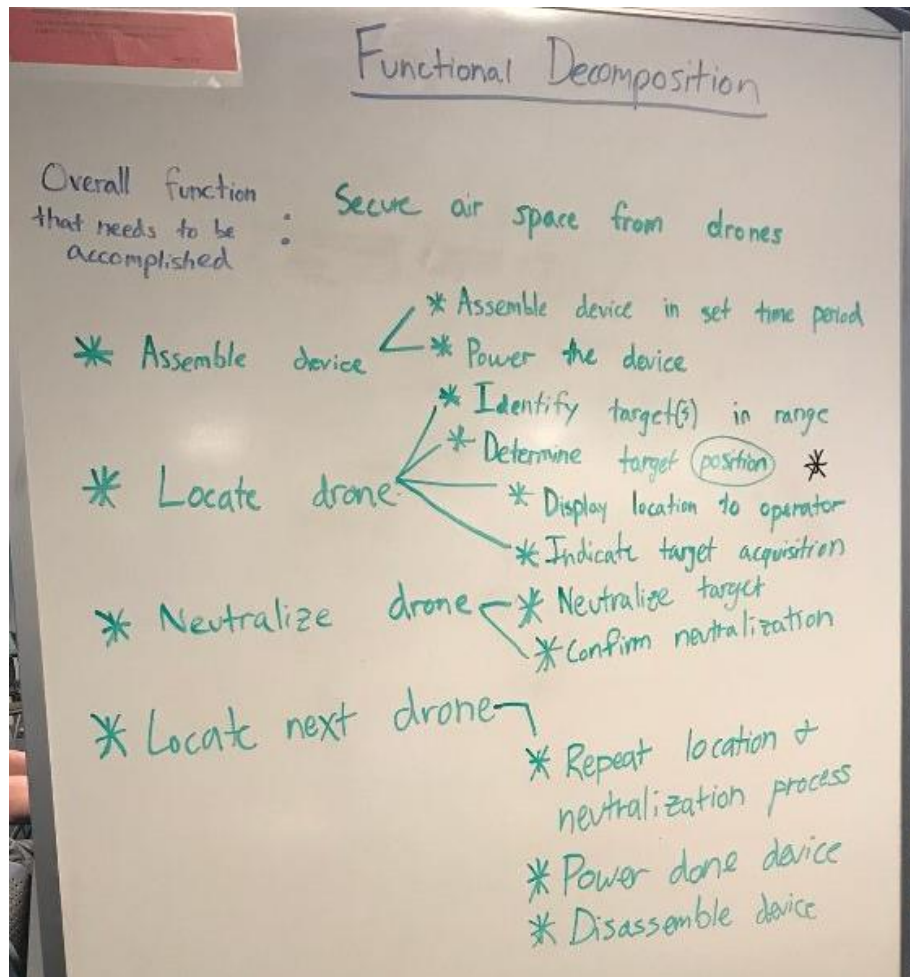 Functional Decomposition
Overall function
that needs to be
accomplished
: Secure air space from drones
* Assemble device
* Assemble device in set time period
* Power the device
* Locate drone
* Identify target(s) in range
* Determine target position *
* Display location to operator
* Indicate target acquisition
* Neutralize drone
* Neutralize target
* Confirm neutralization
* Locate next drone
* Repeat location &
neutralization process
* Power done device
* Disassemble device